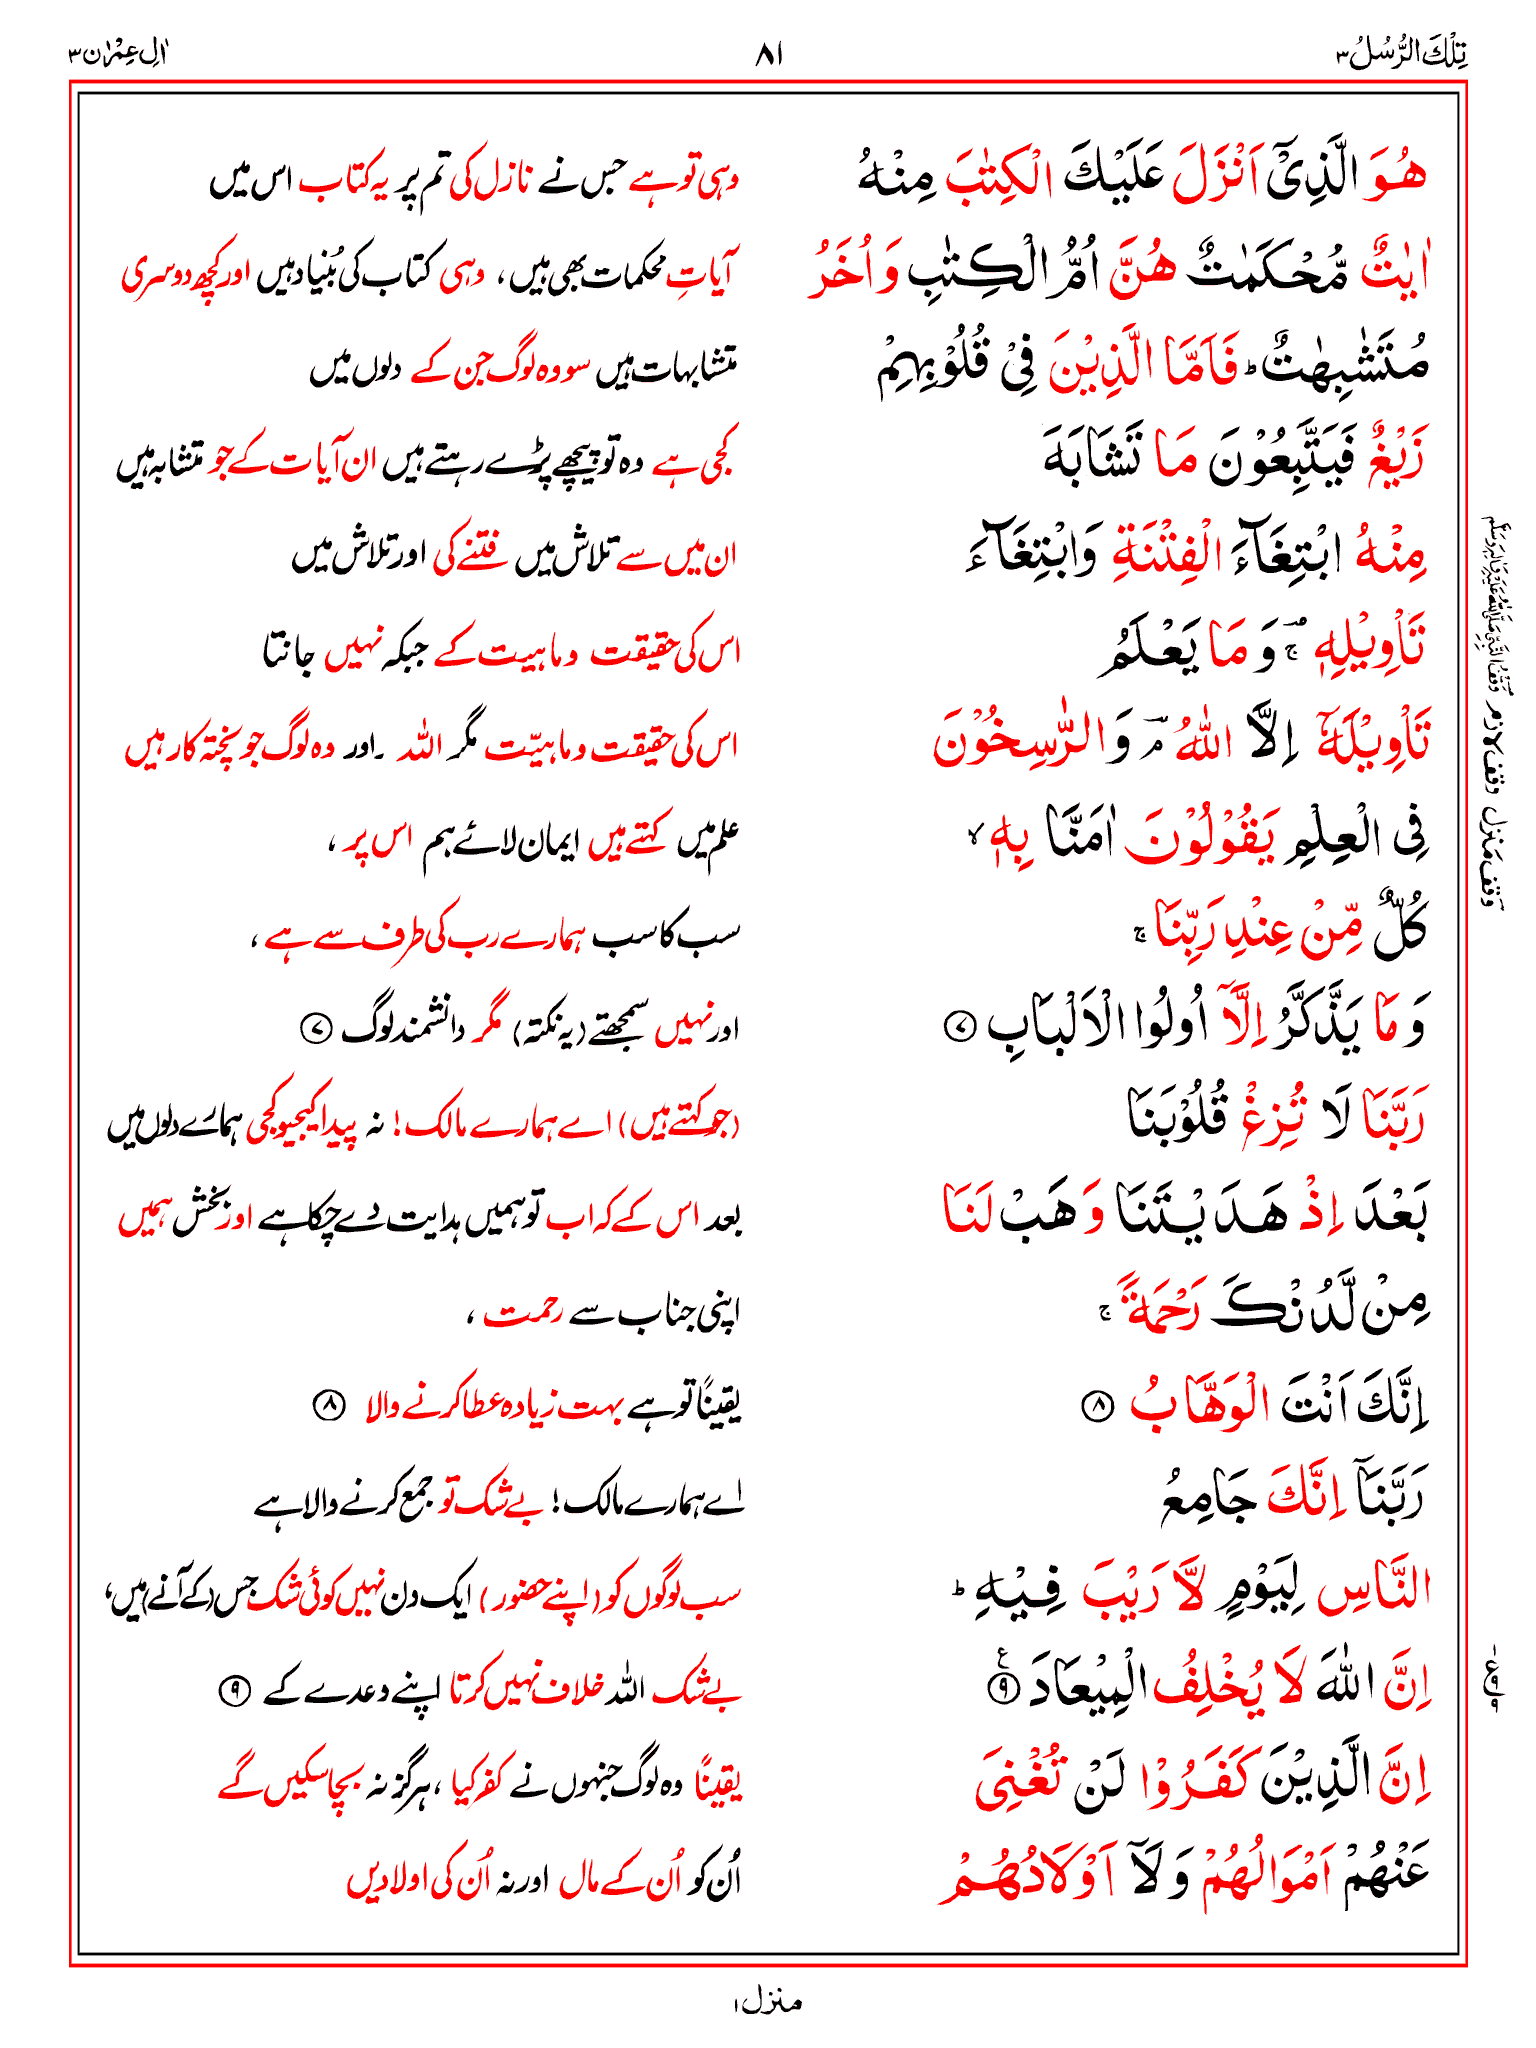 تِلْكَ الرُّسُلُ ٣
٨١
اٰلِ عِمْرٰن ٣
هُوَ الَّذِیْۤ اَنْزَلَ عَلَیْكَ الْكِتٰبَ مِنْهُ
وہی تو ہے جس نے نازل کی تم پر یہ کتاب اس میں
اٰیٰتٌ مُّحْكَمٰتٌ هُنَّ اُمُّ الْكِتٰبِ وَ اُخَرُ
آیاتِ محکمات بھی ہیں، وہی کتاب کی بُنیاد ہیں اور کچھ دوسری
مُتَشٰبِهٰتٌ ؕ فَاَمَّا الَّذِیْنَ فِیْ قُلُوْبِهِمْ
متشابہات ہیں سو وہ لوگ جن کے دلوں میں
زَیْغٌ فَیَتَّبِعُوْنَ مَا تَشَابَهَ
کجی ہے وہ تو پیچھے پڑے رہتے ہیں ان آیات کے جو متشابہ ہیں
مِنْهُ ابْتِغَآءَ الْفِتْنَةِ وَابْتِغَآءَ
ان میں سے تلاش میں فتنے کی اور تلاش میں
تَاْوِیْلِهٖ ۚ وَ مَا یَعْلَمُ
اس کی حقیقت و ماہیت کے جبکہ نہیں جانتا
تَاْوِیْلَهٗۤ اِلَّا اللّٰهُ ۘ وَ الرّٰسِخُوْنَ
اس کی حقیقت و ماہیّت مگر اللہ ۔اور وہ لوگ جو پختہ کار ہیں
فِی الْعِلْمِ یَقُوْلُوْنَ اٰمَنَّا بِهٖ ۙ
علم میں کہتے ہیں ایمان لائے ہم اس پر ،
كُلٌّ مِّنْ عِنْدِ رَبِّنَا ۚ
سب کا سب ہمارے رب کی طرف سے ہے ،
وَ مَا یَذَّكَّرُ اِلَّاۤ اُولُوا الْاَلْبَابِ ۝٧
اور نہیں سمجھتے (یہ نکتہ) مگر دانشمند لوگ ۝٧
رَبَّنَا لَا تُزِغْ قُلُوْبَنَا
(جو کہتے ہیں) اے ہمارے مالک! نہ پیدا کیجیو کجی ہمارے دلوں میں
بَعْدَ اِذْ هَدَیْتَنَا وَ هَبْ لَنَا
بعد اس کے کہ اب تو ہمیں ہدایت دے چکا ہے اور بخش ہمیں
مِنْ لَّدُنْكَ رَحْمَةً ۚ
اپنی جناب سے رحمت ،
اِنَّكَ اَنْتَ الْوَهَّابُ ۝٨
یقینًا تو ہے بہت زیادہ عطا کرنے والا ۝٨
رَبَّنَاۤ اِنَّكَ جَامِعُ
اے ہمارے مالک! بے شک تو جمع کرنے والا ہے
النَّاسِ لِیَوْمٍ لَّا رَیْبَ فِیْهِ ؕ
سب لوگوں کو (اپنے حضور) ایک دن نہیں کوئی شک جس (کے آنے) میں،
اِنَّ اللّٰهَ لَا یُخْلِفُ الْمِیْعَادَ ۝٩ ع
بے شک اللہ خلاف نہیں کرتا اپنے وعدے کے ۝٩
اِنَّ الَّذِیْنَ كَفَرُوْا لَنْ تُغْنِیَ
یقینًا وہ لوگ جنہوں نے کفر کیا ، ہرگز نہ بچا سکیں گے
عَنْهُمْ اَمْوَالُهُمْ وَ لَاۤ اَوْلَادُهُمْ
اُن کو اُن کے مال اور نہ اُن کی اولادیں
وقف منزل وقف لازم وقف النبی صلی اللہ علیہ وآلہ وسلم
منزل ١